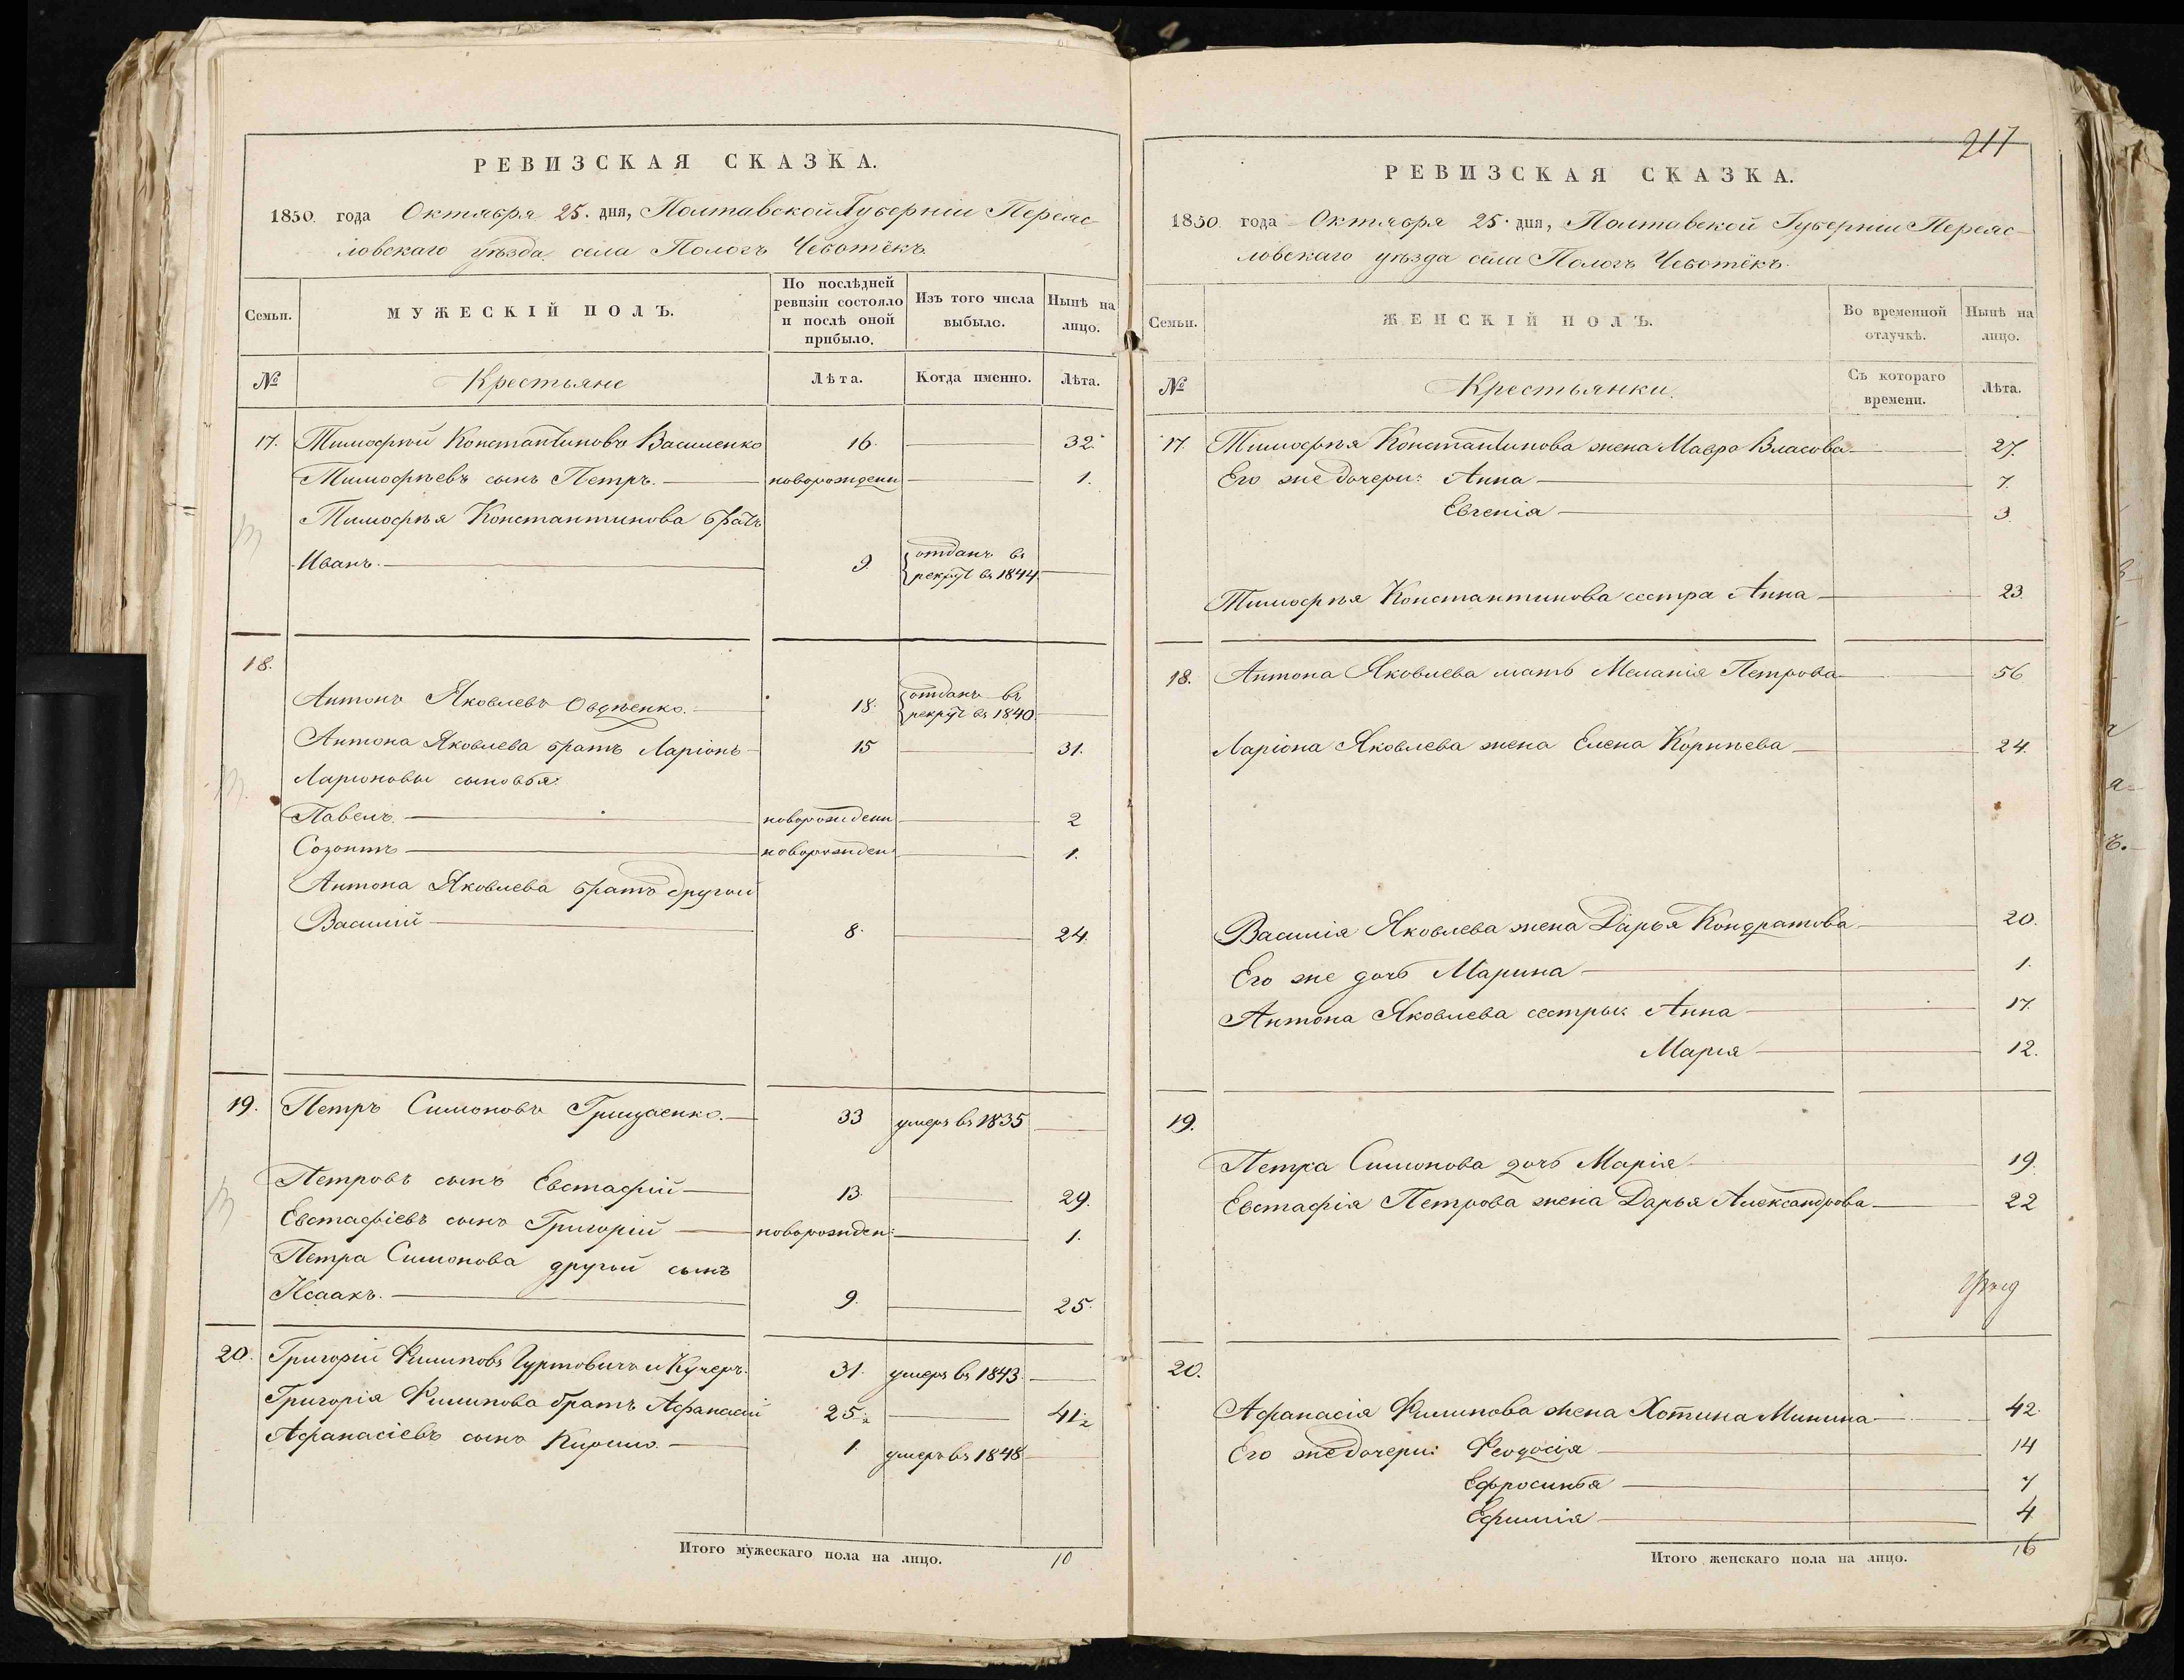 РЕВИЗСКАЯ СКАЗКА.
1850 года Октября 25. дня, Полтавской Губерніи Переяс-
ловскаго уѣзда села Пологъ Чеботёкъ.
Семьи.
МУЖЕСКІЙ ПОЛЪ.
По послѣдней ревизіи состояло и послѣ оной прибыло.
Изъ того числа выбыло.
Нынѣ на лицо.
№ Крестьяне Лѣта. Когда именно. Лѣта.
17. Тимофѣй Константиновъ Василенко 16. 32.
Тимофѣевъ сынъ Петръ. новорожденн 1.
Тимофѣя Константинова братъ
Иванъ. 9. отданъ въ рекрут въ 1844.
18.
Антонъ Яковлевъ Овдѣенко. 18. отданъ въ рекрут въ 1840.
Антона Яковлева братъ Ларіонъ 15 31.
Ларіоновы сыновья:
Павелъ. новорожденн 2
Созонтъ новорожден: 1.
Антона Яковлева братъ другой
Василій 8. 24.
19. Петръ Симоновъ Грицаенко. 33 умеръ въ 1835
Петровъ сынъ Евстафій 13. 29.
Евстафіевъ сынъ Григорій новорожден: 1.
Петра Симонова другой сынъ
Исаакъ. 9. 25.
20. Григорій Филиповъ Гуртовичъ и Кучеръ. 31. умеръ въ 1843.
Григорія Филипова братъ Афанасій 25½ 41½
Афанасіевъ сынъ Кирило. 1. умеръ въ 1848
Итого мужескаго пола на лицо. 10
217
РЕВИЗСКАЯ СКАЗКА.
1850 года Октября 25. дня, Полтавской Губерніи Переяс-
ловскаго уѣзда села Пологъ Чеботёкъ.
Семьи.
ЖЕНСКІЙ ПОЛЪ.
Во временной отлучкѣ.
Нынѣ на лицо.
№ Крестьянки. Съ котораго времени. Лѣта.
17. Тимофѣя Константинова жена Мавра Власова 27.
Его же дочери: Анна 7.
Евгенія 3.
Тимофѣя Константинова сестра Анна 23.
18. Антона Яковлева мать Меланія Петрова 56
Ларіона Яковлева жена Елена Корнѣева 24.
Василія Яковлева жена Дарья Кондратова 20.
Его же дочь Марина 1.
Антона Яковлева сестры: Анна 17.
Марія 12.
19.
Петра Симонова дочь Марія 19.
Евстафія Петрова жена Дарья Александрова 22
20.
Афанасія Филипова жена Хотина Минина 42.
Его же дочери: Феодосія 14
Ефросинья 7
Ефимія 4.
Итого женскаго пола на лицо. 16